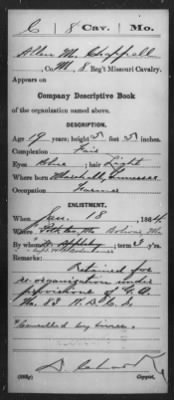 C | 8 Cav. | Mo.
Allen M. Chappell
, Co. M, 8 Reg't Missouri Cavalry.
Appears on
Company Descriptive Book
of the organization named above.
DESCRIPTION.
Age 19 years; height 5 feet 5 inches.
Complexion Fair
Eyes Blue ; hair Light
Where born Marshall, Tennessee
Occupation Farmer
ENLISTMENT.
When Jan. 18 , 1864.
Where Mo.
By whom Appleby ; term 3 y'rs.
Remarks:
Retained for
re-organization under
provisions of G.O.
No. 83
Cancelled by
(383g) Copyist.